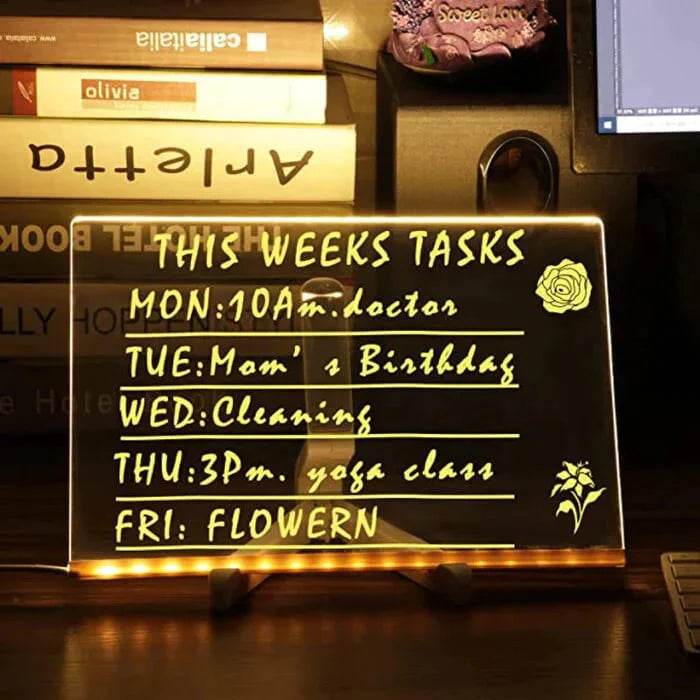 caliaitalia
www.caliaitalia
olivia
Arletta
THE HOTEL BOOK
KELLY HOPPEN STYLE
Sweet Love
THIS WEEKS TASKS
MON:10Am.doctor
TUE:Mom's Birthday
WED:Cleaning
THU:3Pm. yoga class
FRI: FLOWERN